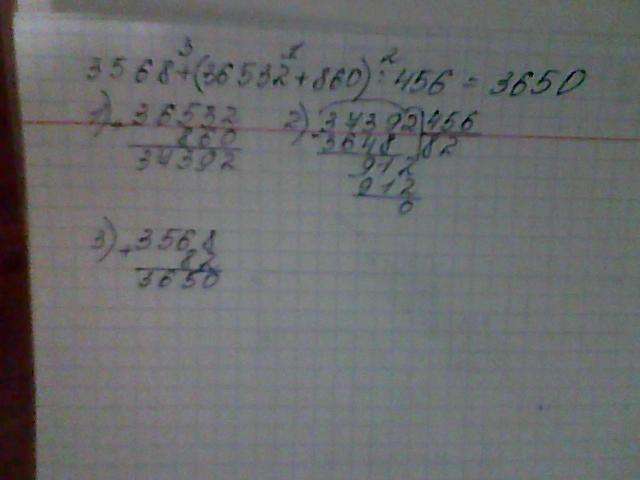 3568+(36532+860):456=3650
3 1 2
1) + 36532
860
34392
2) - 34392 | 456
3648 | 82
912
- 912
0
3) + 3568
82
3650